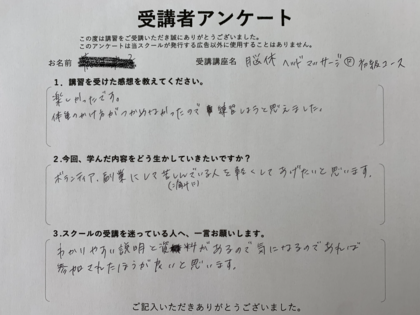 受講者アンケート
この度は講習をご受講いただき誠にありがとうございました。
このアンケートは当スクールが発行する広告以外に使用することはありません。
お名前 受講講座名 脳休 ヘッドマッサージ 初級コース
1．講習を受けた感想を教えてください。
楽しかったです。
体重のかけ方がつかめなかったので 練習しようと思えました。
2.今回、学んだ内容をどう生かしていきたいですか？
ボランティア、副業にして苦しんでいる人を軽くしてあげたいと思います。
3.スクールの受講を迷っている人へ、一言お願いします。
わかりやすい説明と資料があるので気になるのであれば
参加されたほうが良いと思います。
ご記入いただきありがとうございました。